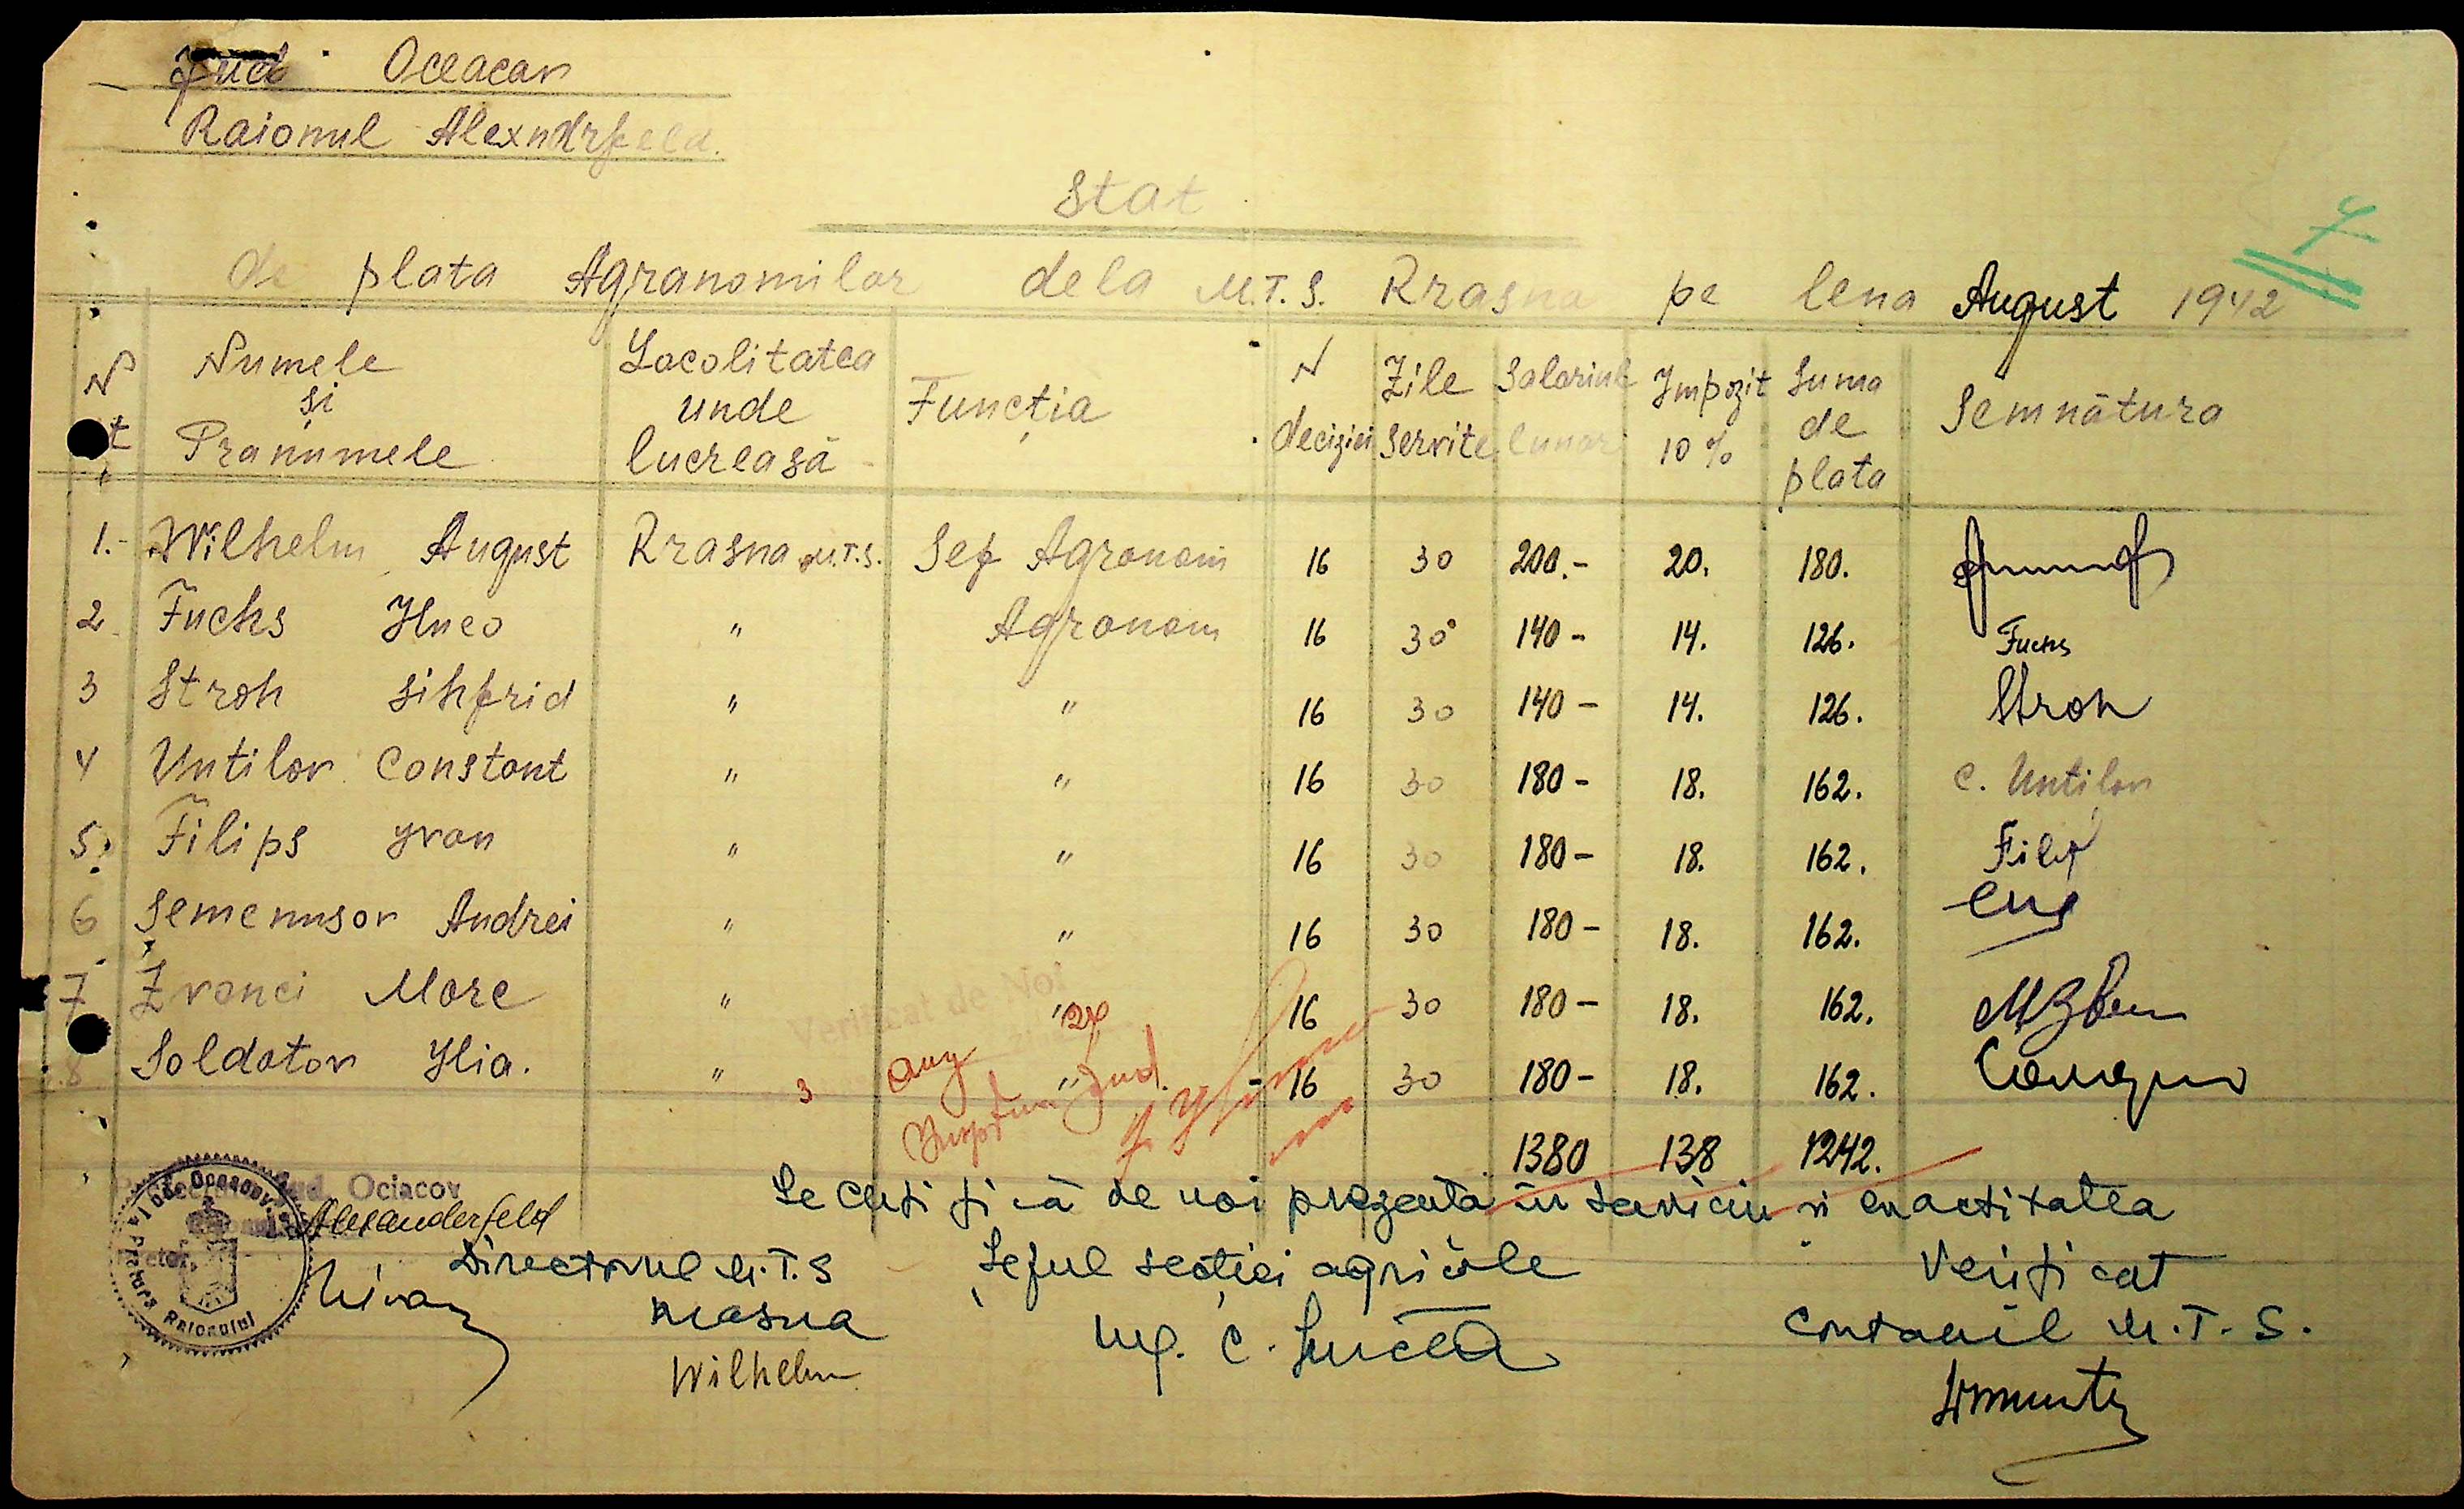 Jud. Oceacov
Raionul Alexndrfeld.
7
Stat
de plata Agranomilor dela M.T.S. Rrasna pe lena August 1942
N t Numele și Pranumele Locolitatea unde lucreasă Funcția N deciziei Zile servite Salariul lunar Impozit 10% Suma de plata Semnătura
1. Wilhelm August Rrasna M.T.S. Sef Agronom 16 30 200.- 20. 180.
2 Fuchs Huco " Agronom 16 30 140 - 14. 126. Fuchs
3 Stroh Sihfrid " " 16 30 140 - 14. 126. Stroh
4 Untilov Constant " " 16 30 180 - 18. 162. C. Untilov
5. Filips Yvan " " 16 30 180 - 18. 162. Filip
6 Semennsov Andrei " " 16 30 180 - 18. 162.
7 Zvonci Marc " " 16 30 180 - 18. 162.
8 Soldatov Ylia. " " 16 30 180 - 18. 162.
Verificat de Noi
3 Aug
Jud.
1380 138 1242.
Se certifică de noi prezența în serviciu și exactitatea
Prefectura Jud. Ociacov
Alexanderfeld
Pretor,
Pretura Raionului
Directorul M.T.S
Rrasna
Wilhelm
Șeful secției agricole
Ing. C.
Verificat
Contabil M.T.S.